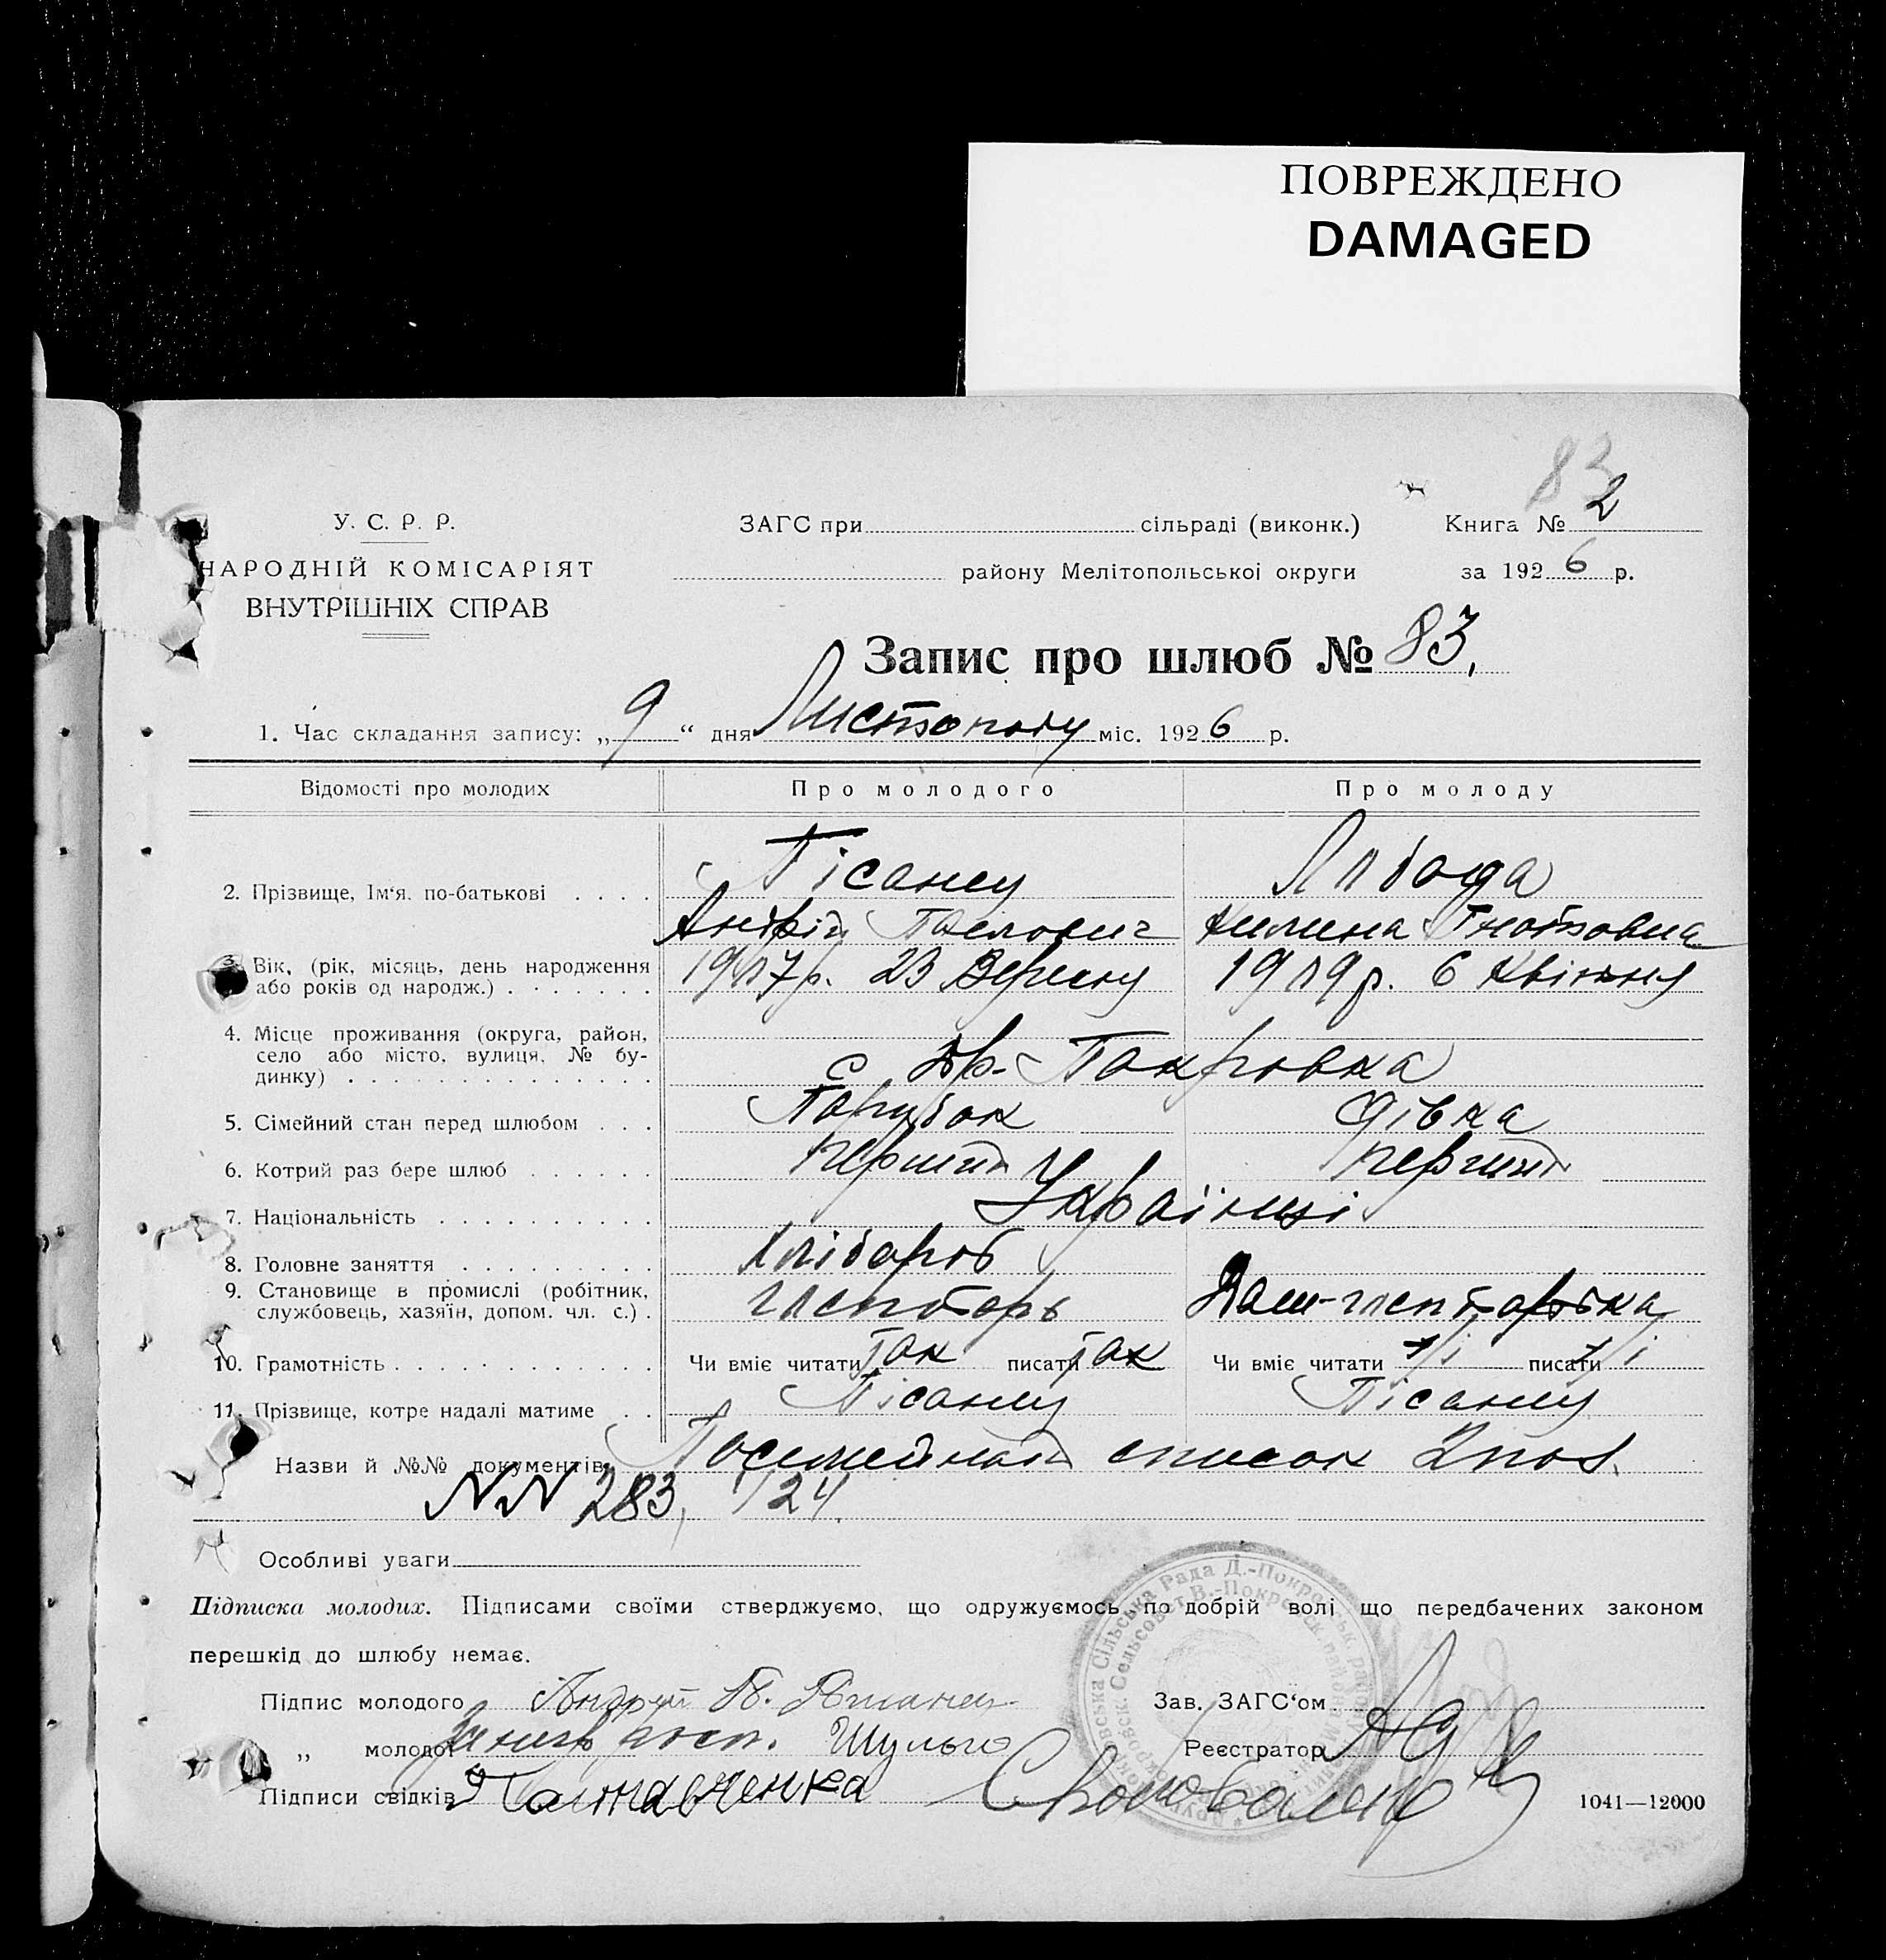 ПОВРЕЖДЕНО
DAMAGED
83
У. С. Р. Р.
ЗАГС при сільраді (виконк.)
Книга № 2
НАРОДНІЙ КОМІСАРІЯТ
району Мелітопольської округи
за 1926 р.
ВНУТРІШНІХ СПРАВ
Запис про шлюб № 83,
1. Час складання запису: „9“ дня Листопаду міс. 1926 р.
Відомості про молодих
Про молодого
Про молоду
2. Прізвище, Ім‘я, по-батькові . . . .
Пісанец
Андрій Павлович
Килина Гнатовна
3. Вік, (рік, місяць, день народження
або років од народж.) . . . . . . .
23 Вересну
6 Квітну
4. Місце проживання (округа, район,
село або місто, вулиця, № бу-
динку) . . . . . . . . . . . . . .
с Др. Покровка
5. Сімейний стан перед шлюбом . . .
Парубок
Дівка
6. Котрий раз бере шлюб . . . . . .
перший
перший
7. Національність . . . . . . . . . .
Українці
8. Головне заняття . . . . . . . . .
Хлібороб
9. Становище в промислі (робітник,
службовець, хазяїн, допом. чл. с.) .
10. Грамотність . . . . . . . . . . . .
Чи вміє читати так писати так
Чи вміє читати н/і писати н/і
11. Прізвище, котре надалі матиме . .
Пісанец
Пісанец
Назви й №№ документів Посемейний список
NN 283, 124.
Особливі уваги
Підписка молодих. Підписами своїми стверджуємо, що одружуємось по добрій волі що передбачених законом
перешкід до шлюбу немає.
Підпис молодого Андрей П.
Зав. ЗАГС‘ом
„ молодої Шульга
Реєстратор
Підписи свідків
1041—12000